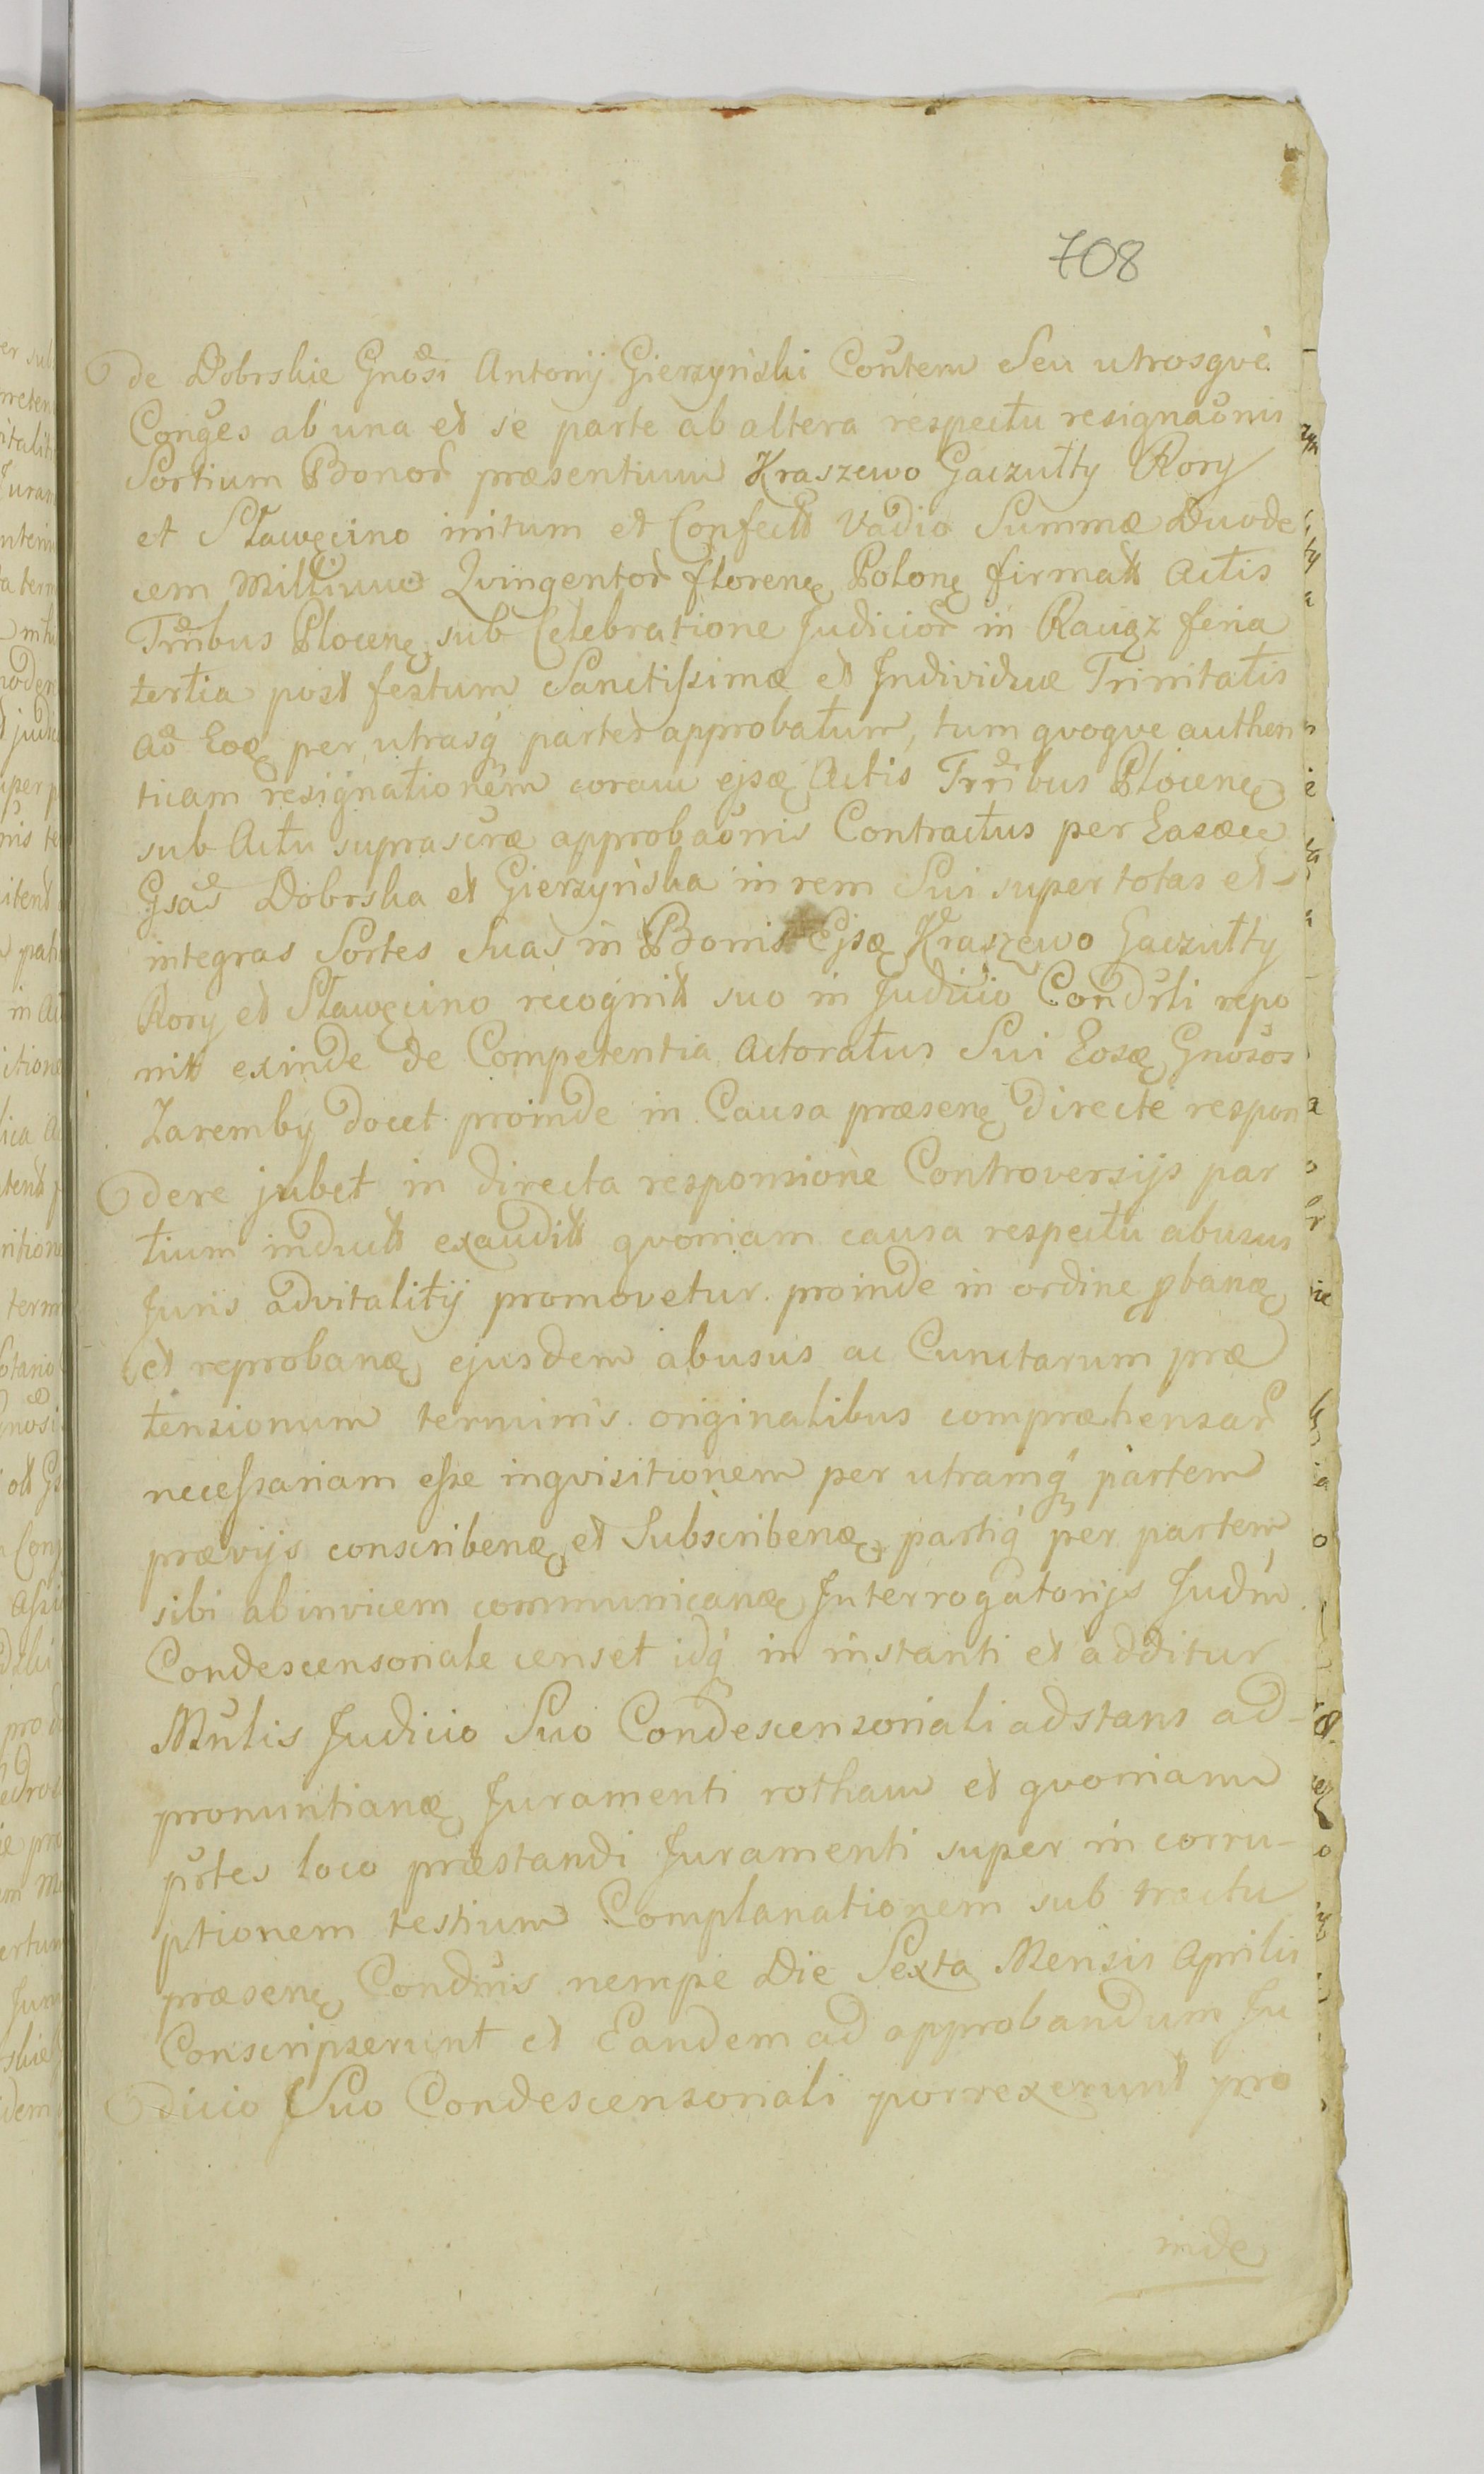 708
de Dobrskie Gnosi Antonij Gierzyński Contem Seu utrosqvè
Conges ab una et se parte ab altera respectu resignaonis
Sortium Bonor præsentium Kraszewo Gaczułty Rory
et Sławęcino initum et Confectt Vadio Summæ Duode
cem Millium Qvingentor florenę Polonę firmatt Actis
Trribus Plocenę sub Celebratione Judicior in Raciąz feria
tertia post festum Sanctissimæ et Individuæ Trinitatis
ad Eoę per utrasq partes approbatum, tum qvoqve authen
ticam resignationem coram ejsę Actis Trribus Plocenę
sub Actu suprascræ approbaonis Contractus per Easæ
Gsas Dobrska et Gierzyńska in rem Sui super totas et
integras Sortes Suas in Bonis Ejsę Kraszewo Gaczułty
Rory et Sławęcino recognitt suo in Judicio Condrli repo
nitt exinde de Competentia Actoratus Sui Eosę Gnosos
Zaremby docet proinde in Causa præsenę directè respon
dere jubet in directa responsione Controversijs par
tium inductt exauditt qvoniam causa respectu abusus
Juris advitalitij promovetur. proinde in ordine pbanę
et reprobanę ejusdem abusus ac Cunctarum præ
tensionum terminis originalibus compræhensar
necessariam esse inqvisitionem per utramq partem
prævijs conscribenę et Subscribenę partiq per partem
sibi abinvicem communicanę Interrogatorijs Judm
Condescensoriale censet idq in instanti et additur
Mnlis Judicio Suo Condescensoriali adstans ad-
pronuntianę Juramenti rotham et qvoniam
prtes loco præstandi Juramenti super incorru-
ptionem testium Complanationem sub tractu
præsenę Condnis nempe Die Sexta Mensis Aprilis
Conscripserunt et Eandem ad approbandum Ju
dicio Suo Condescensoriali porrexerunt pro
inde